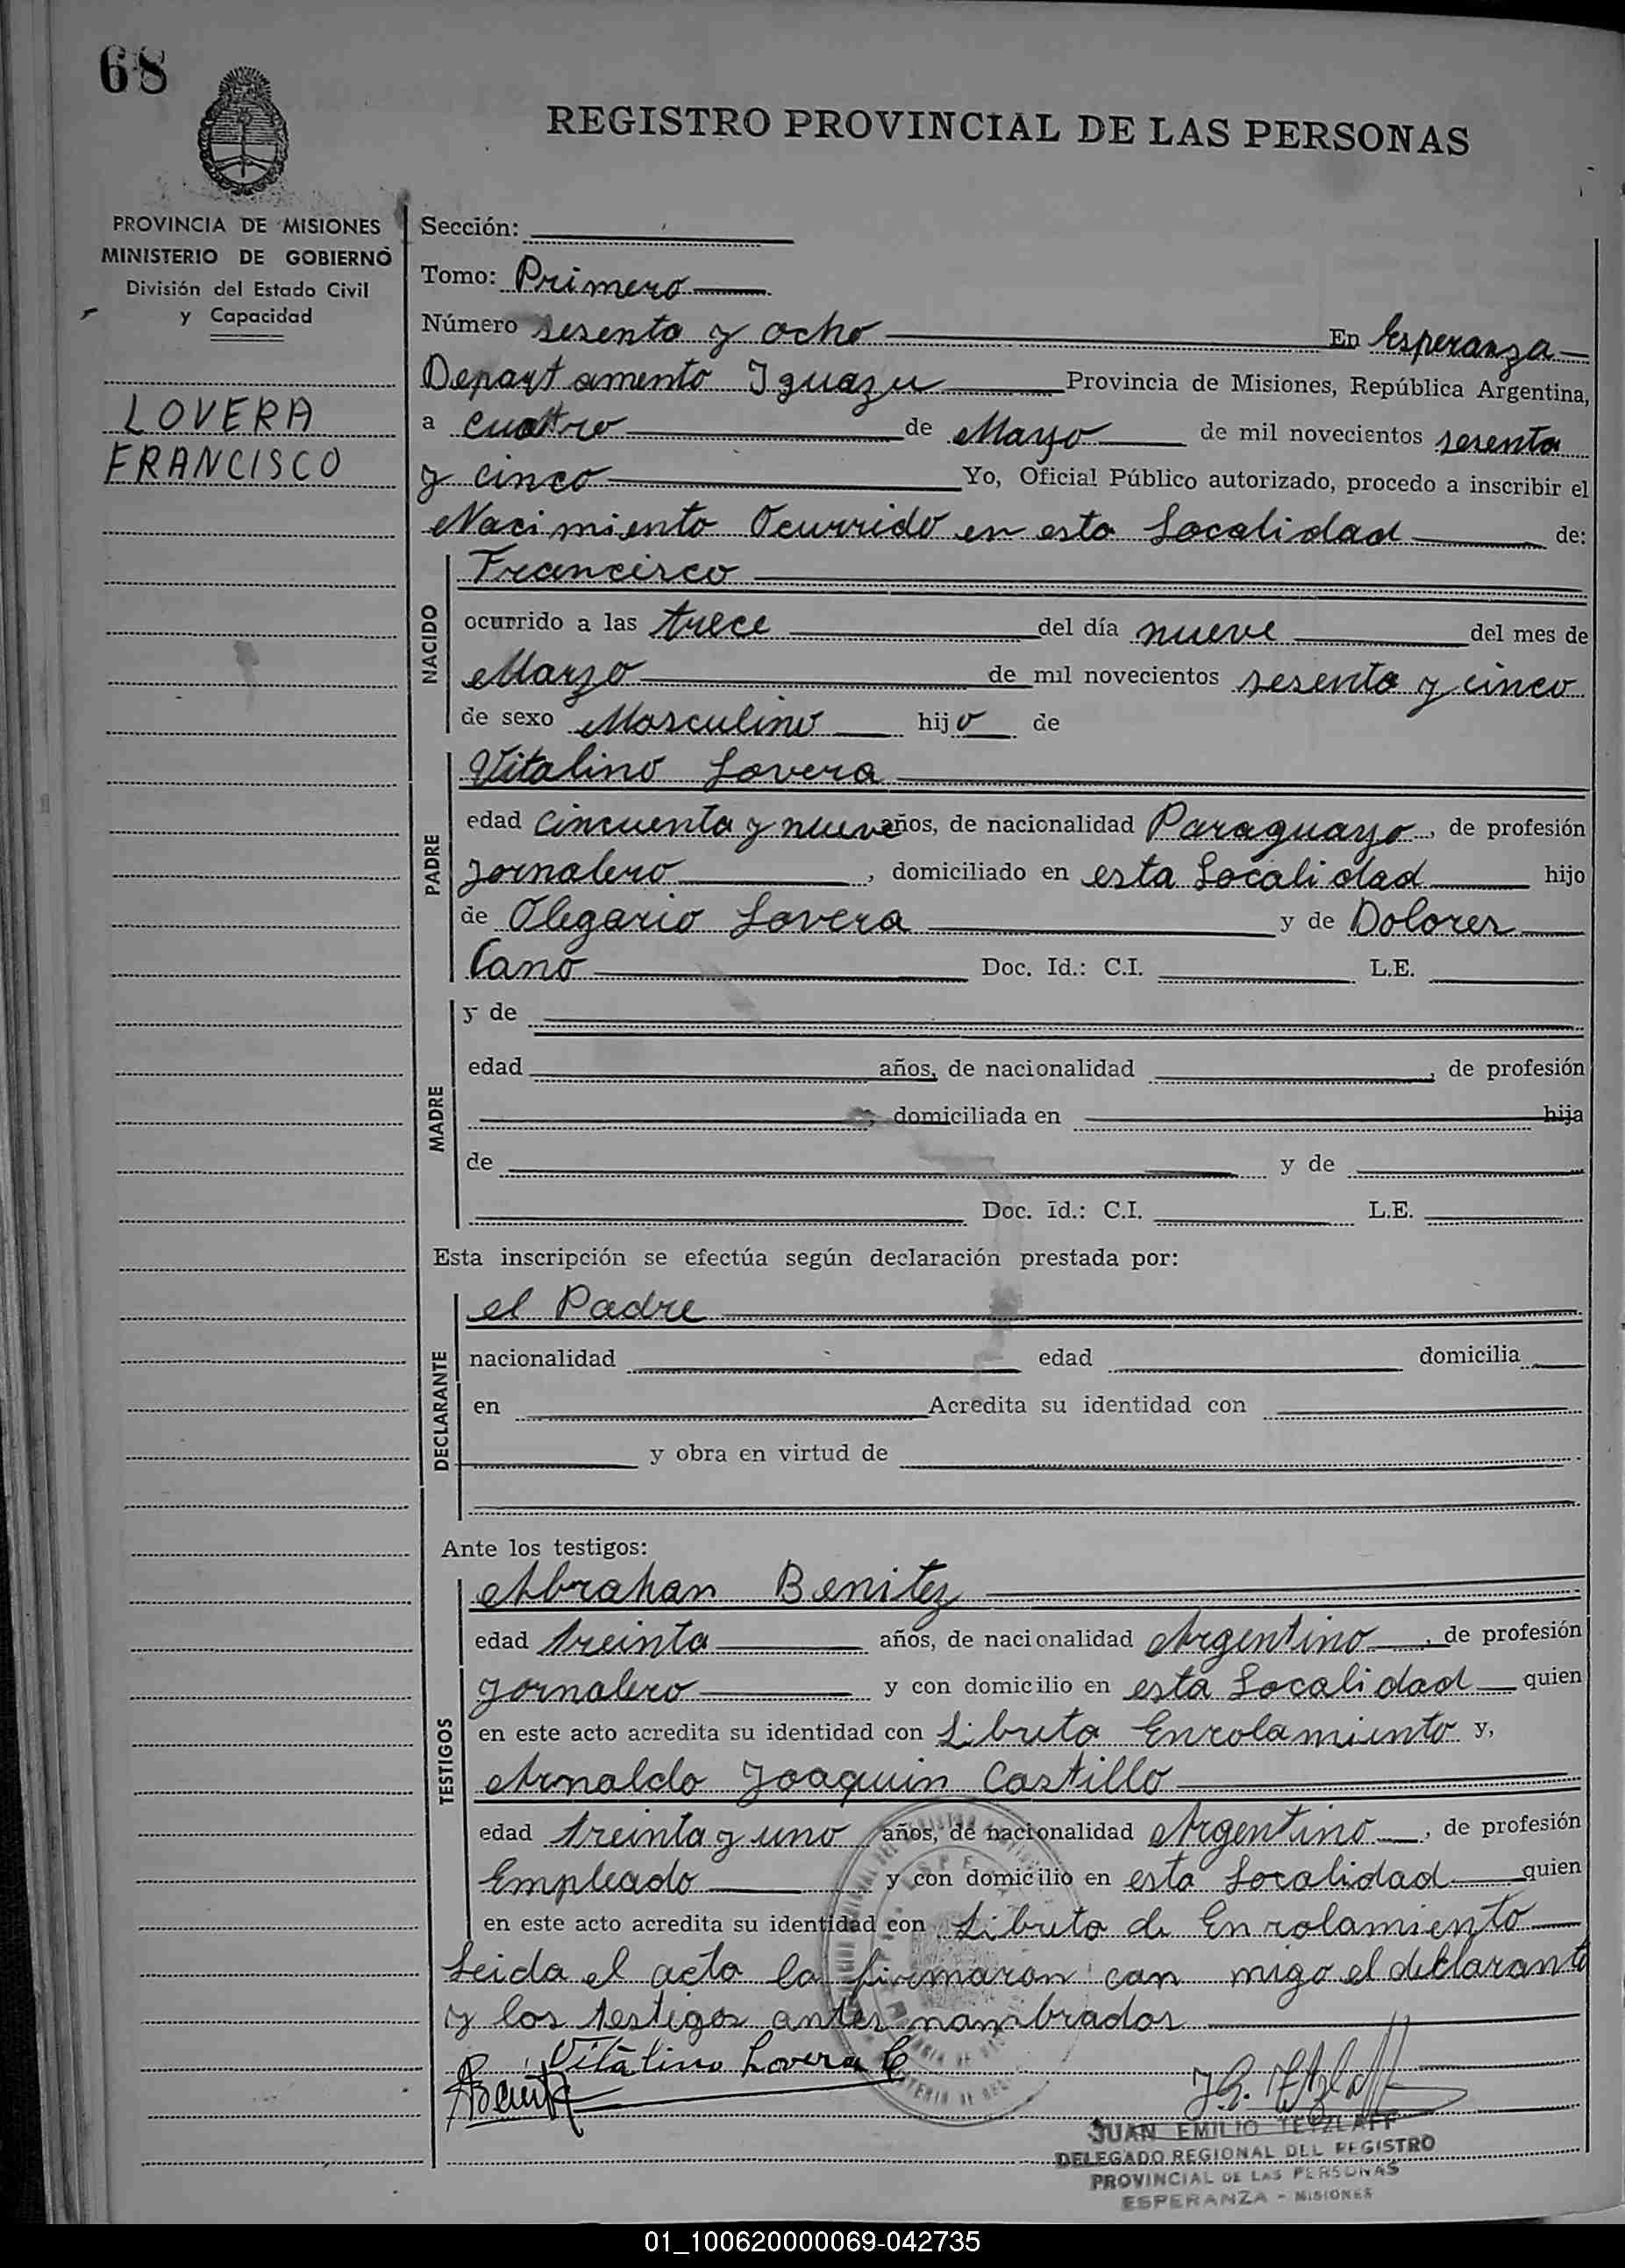 68
REGISTRO PROVINCIAL DE LAS PERSONAS
PROVINCIA DE MISIONES
MINISTERIO DE GOBIERNO
División del Estado Civil
y Capacidad
LOVERA
FRANCISCO
Sección:
Tomo: Primero
Número sesenta y ocho En Esperanza
Departamento Iguazu Provincia de Misiones, República Argentina,
a cuatro de Mayo de mil novecientos sesenta
y cinco Yo, Oficial Público autorizado, procedo a inscribir el
Nacimiento Ocurrido en esta Localidad de:
NACIDO
Francisco
ocurrido a las trece del día nueve del mes de
Marzo de mil novecientos sesenta y cinco
de sexo Masculino hijo de
PADRE
Vitalino Lovera
edad cincuenta y nueve años, de nacionalidad Paraguayo, de profesión
Jornalero, domiciliado en esta Localidad hijo
de Olegario Lovera y de Dolores
Cano Doc. Id.: C.I. L.E.
MADRE
y de
edad años, de nacionalidad , de profesión
, domiciliada en hija
de y de
Doc. id.: C.I. L.E.
Esta inscripción se efectúa según declaración prestada por:
DECLARANTE
el Padre
nacionalidad edad domicilia
en Acredita su identidad con
y obra en virtud de
Ante los testigos:
TESTIGOS
Abrahan Benitez
edad treinta años, de nacionalidad Argentino, de profesión
Jornalero y con domicilio en esta Localidad quien
en este acto acredita su identidad con Libreta Enrolamiento y,
Arnaldo Joaquin Castillo
edad treinta y uno años, de nacionalidad Argentino, de profesión
Empleado y con domicilio en esta Localidad quien
en este acto acredita su identidad con Libreta de Enrolamiento
Leida el acta la firmaron con migo el declarante
y los testigos antes nombrados
Vitalino Lovera C
JUAN EMILIO TETZLAFF
DELEGADO REGIONAL DEL REGISTRO
PROVINCIAL DE LAS PERSONAS
ESPERANZA - MISIONES
01_100620000069-042735